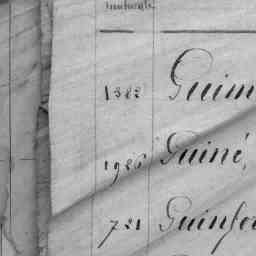 1382 Guim
1926 Guiné,
721 Guinfo